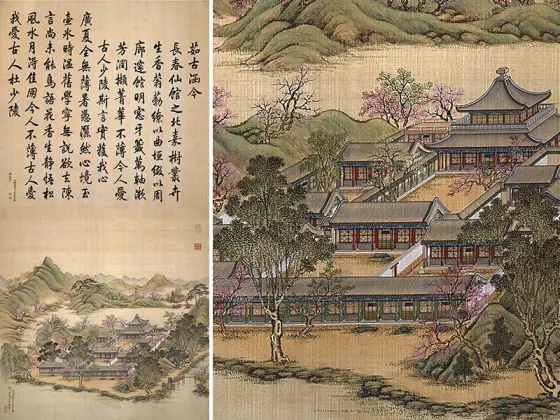 茹古涵今
長春仙館之北嘉樹叢卉
生香蓊葧繚以曲垣綴以周
廊邃館明窓牙籤萬軸漱
芳潤擷菁華不薄今人愛
古人少陵斯言實獲我心
廣厦全無薄暑憑灑然心境玉
壺氷時溫舊學寧無說欲去陳
言尚未能鳥語花香生靜悟松
風水月得佳朋今人不薄古人愛
我愛古人杜少陵